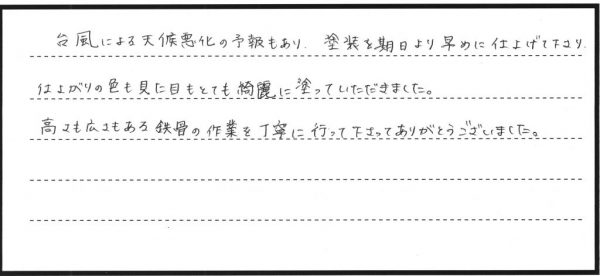 台風による天候悪化の予報もあり、塗装を期日より早めに仕上げて下さり、
仕上がりの色も見た目もとても綺麗に塗っていただきました。
高さも広さもある鉄骨の作業を丁寧に行って下さってありがとうございました。